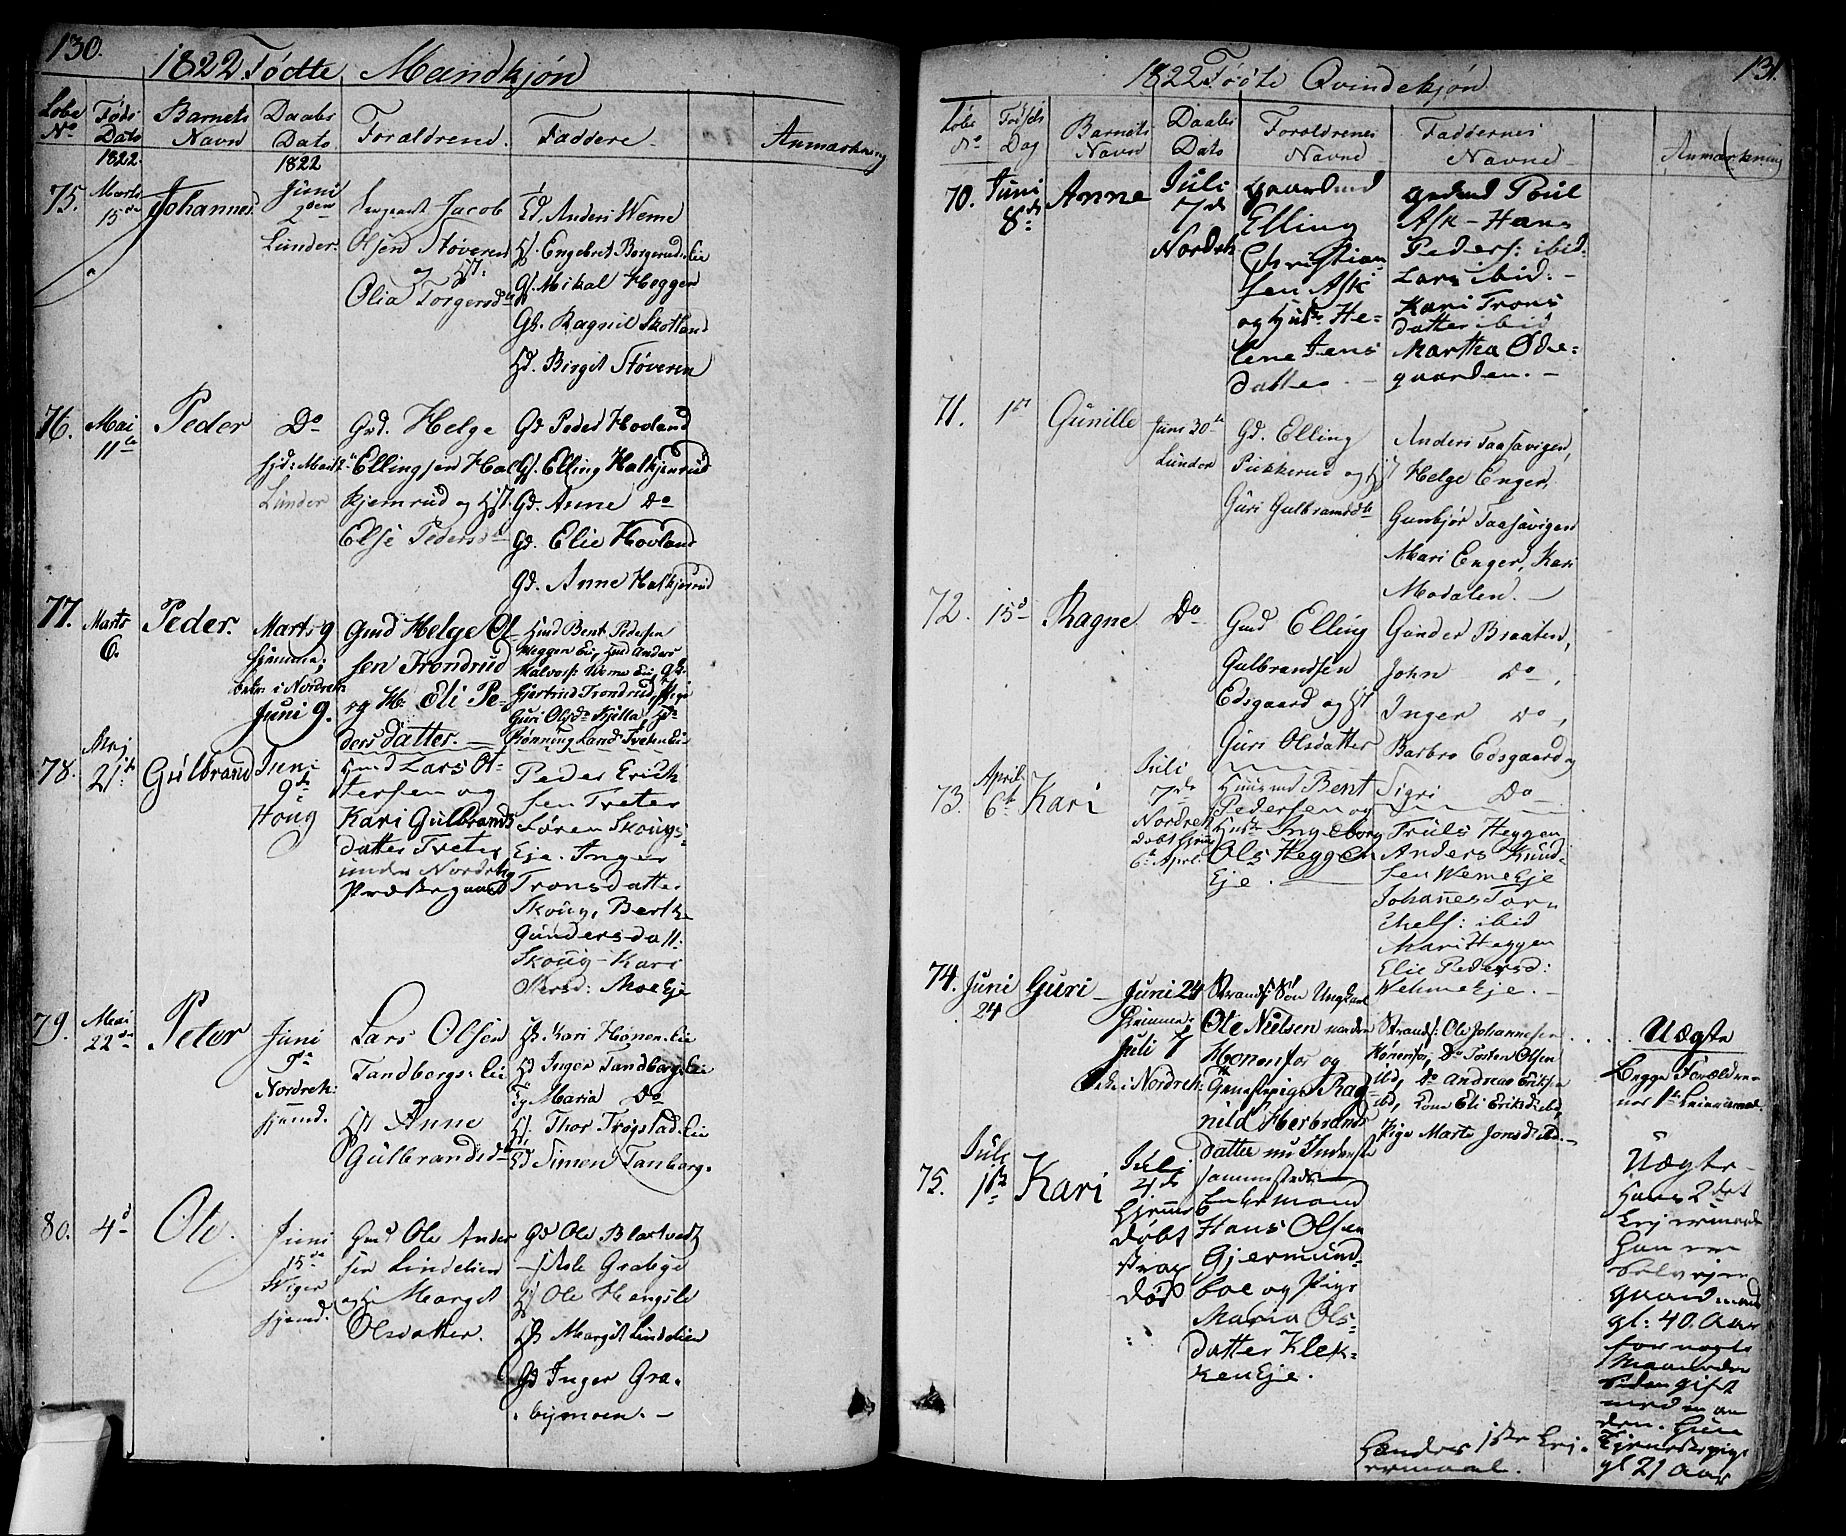 130.
1822 Födte Mandkjön
Löbe No
Föds Dato
Barnets Navn
Daabs Dato
Foraldrene.
Faddere.
Anmærkning
1822.
1822
75.
Marts 15de
Johannes
Juni 2den
Lunder:
Sergeant Jacob
Olsen Støveren
og Hst.
Olia Torgersdtr
Gd. Anders Weme
Hs. Engebret Borgerud. Eie
Gs. Mikal Heggen
Gk. Ragnil Skotland
Gd. Birgit Støveren
76.
Mai 11te
Peder
Do
hjd: Mai
Lunder
Grd. Helge
Ellingsen Hal
kjemrud og Hst.
Else Pedersdtr
Gd. Peder Hovland
Gs. Elling Halkjenrud
Gd. Anne Do
Gd. Elie Hovland
Gd. Anne Halkjenrud
77.
Marts 6.
Peder.
Marts 9
hjemme;
i Nordreh:
Juni 9.
Gmd Helge Ol
sen Trondrud
og H: Eli Pe-
dersdatter.
Hmd Bent Pedersen
Heggen Ei, Hmd Anders
Halvors: Weme Ei, Gk.
Gjertrud Trondrud, Pige
Guri Olsdr
Land Tveten Ei
78.
Maj 21de
Gulbrand
Juni 9de
Houg
Hmd Lars Ol-
sen og
Kari Gulbrands
datter Tveter
under Nordreh
Præstegaard
Peder Erich
sen Tveter
Søren Skougs
Eje. Inger
Tronsdatter
Skoug, Berthe
Gundersdatt:
Skoug - Kari
Persd: Moe Eje
79.
Mai 22de
Peter
Juni 9de
Nordreh:
hjemd.
Lars Olsen
Tandbergs: Eie
Hst Anne
Gulbrandsdtr
Hs. Kari Hønen. Eie
Gd Inger Tandbergs: Eie
Pg Maria Do
Hs. Thor Trøgstad. Eie
Gd Simen Tanberg.
80.
4d
Ole.
Juni 15de
Viger
hjemd.
Gmd Ole Ander
sen Lindelien
og H Marget
Olsdatter.
Gd Ole Blaktvedt
Ole Grabye
Hs Ole Hengsle
Gs Margit Lindelien
Gd Inger Gra-
bymoen. -
131.
1822 Föðte Qvindekjön
Löbe No
Föðsels Dag
Barnets Navn
Daabs Dato
Foraldrenes Navne
Faddernes Navne
Anmærkning
70.
Juni 8de
Anne
Juli 7de
Nordreh
Gaardmd
Elling
Christian
sen Ask
og Hustr. He-
lene Jens
datter. -
Grdmd Poul
Ask - Hans
Peders: ibid:
Lars ibid: -
Kari Trons
datter ibid
Martha Öde-
gaarden. -
71.
1ste
Gunille
Juni 30te
Lunder
Gd. Elling
Pukkerud og Hst
Guri Gulbrandsdtr
Anders Taasavigen,
Helge Enger,
Gunbjør Taasavigen
Mari Enger, Kari
Modalen. -
72.
15d
Ragne
Do
Gmd Elling
Gulbrandsen
Edsgaard og Hst
Guri Olsdatter
Gunder Braaten,
John Do,
Inger Do,
Barbro Edsgaard og
Sigri Do
73.
April 6te
Kari
Juli 7de
Nordreh
døbt hjem
6te April
Huusmd Bent
Pedersen og
Hustr Ingeborg
Ols Heggen
Eje.
Truls Heggen
Anders Knud-
sen Weme Eje
Johannes Tor-
chels: ibid
Mari Heggen
Elie Pedersd:
Wehme Eje. -
74.
Juni 24
Guri
Juni 24
hjemme;
Juli 7
i Nordreh:
Strands: Søn Ungkarl
Ole Nielsen nordre
Hønenfos og
Tjenestepige Rag-
nild Herbrands
datter nu Inderste
sammesteds
Strands: Ole Johannesen
Hønenfos, Do Torsten Olsen
ibd, Do Andreas Eriksen
ibd, Kone Eli Eriksd: ibd,
Pige Marte Jonsd: ibd. -
Uægte
Begge Forældre-
nes 1ste Leiermaal.
75.
Juli 1ste
Kari
Juli 4de
hjemme
døbt
strax
død
Enkemand
Hans Olsen
Gjermund-
boe og Pige
Maria Ols-
datter Klek-
ken Eje.
Uægte -
Hans 2det
Lejermaal
han er
Selvejer
gaardmand
gl: 40. Aar
for nogle
Maaneder
siden gift
med en an
den. Hun
Tjenestepige
gl 21 Aar
hendes 1ste Lej-
ermaal.